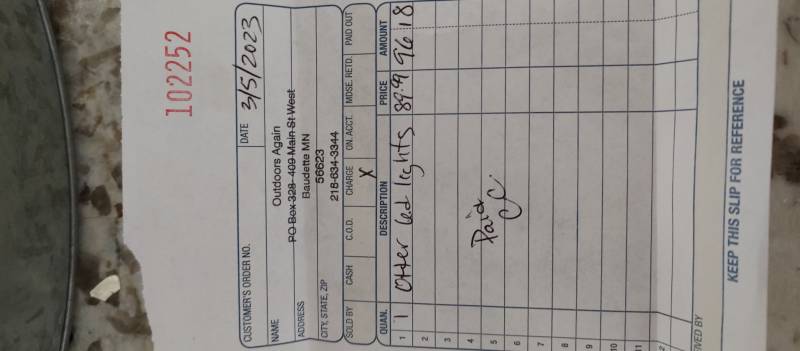 102252
CUSTOMER'S ORDER NO. DATE 3/5/2023
NAME Outdoors Again
ADDRESS PO Box 328 409 Main St West
Baudette MN
CITY, STATE, ZIP 56623
218-634-3344
SOLD BY CASH C.O.D. CHARGE ON. ACCT. MDSE. RETD. PAID OUT
X
QUAN. DESCRIPTION PRICE AMOUNT
1 1 Otter led lights 89.99 96 18
2
3
4
5 Paid
6 CC
7
8
9
10
11
12
KEEP THIS SLIP FOR REFERENCE